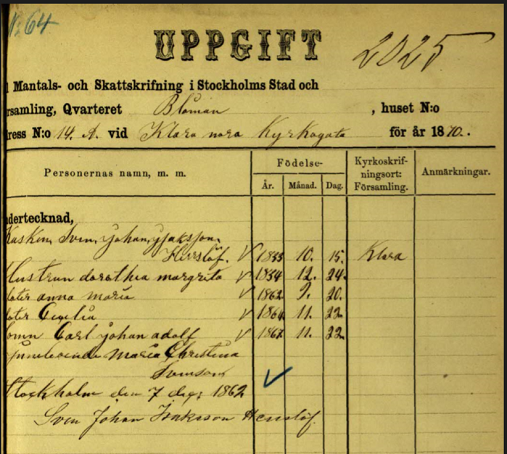 No 64
UPPGIFT 2025
l Mantals- och Skattskrifning i Stockholms Stad och
rsamling, Qvarteret Blåman , huset N:o
ress N:o 14. A. vid Klara norra Kyrkogata för år 1870.
Personernas namn, m. m. Födelse- År. Månad. Dag. Kyrkoskrif-ningsort: Församling. Anmärkningar.
ndertecknad,
Sven, Johan,
Herslöf. V 1833 10. 15. Klara
Hustrun dorothea margrita V 1834 12. 24.
anna maria V 1862 9. 20.
Cecilia V 1864 11. 22
Carl johan adolf V 1867 11. 22
Maria Christina
Stockholm den 7 1862
Sven Johan Isaksson